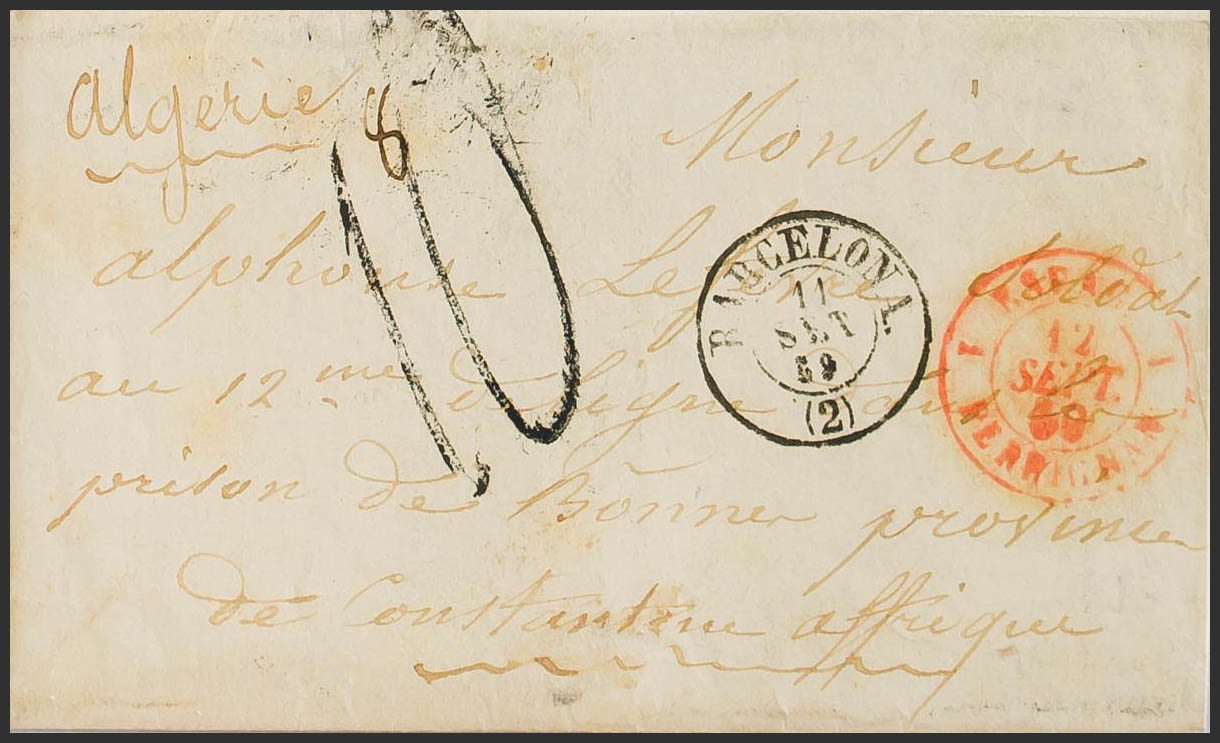 algerie
8
10
Monsieur
alphonse Lefebvre Soldat
au 12 me de ligne
prison de Bonne province
de Constantine affrique
BARCELONA
11
SET
59
(2)
ESPAGNE
12
SEPT.
59
PERPIGNAN